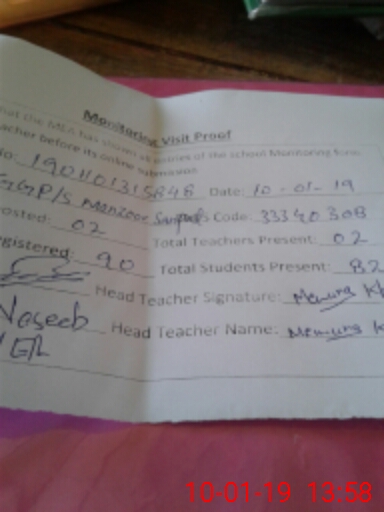 Monitoring Visit Proof
hat the MEA has shown all entries of the School Monitoring form
acher before its online submission
No: 1901101315848 Date: 10-01-19
GGP/S Manzoor Code: 33340308
osted: 02 Total Teachers Present: 02
gistered: 90 Total Students Present: 82
Head Teacher Signature:
Naseeb Head Teacher Name:
10-01-19 13:58